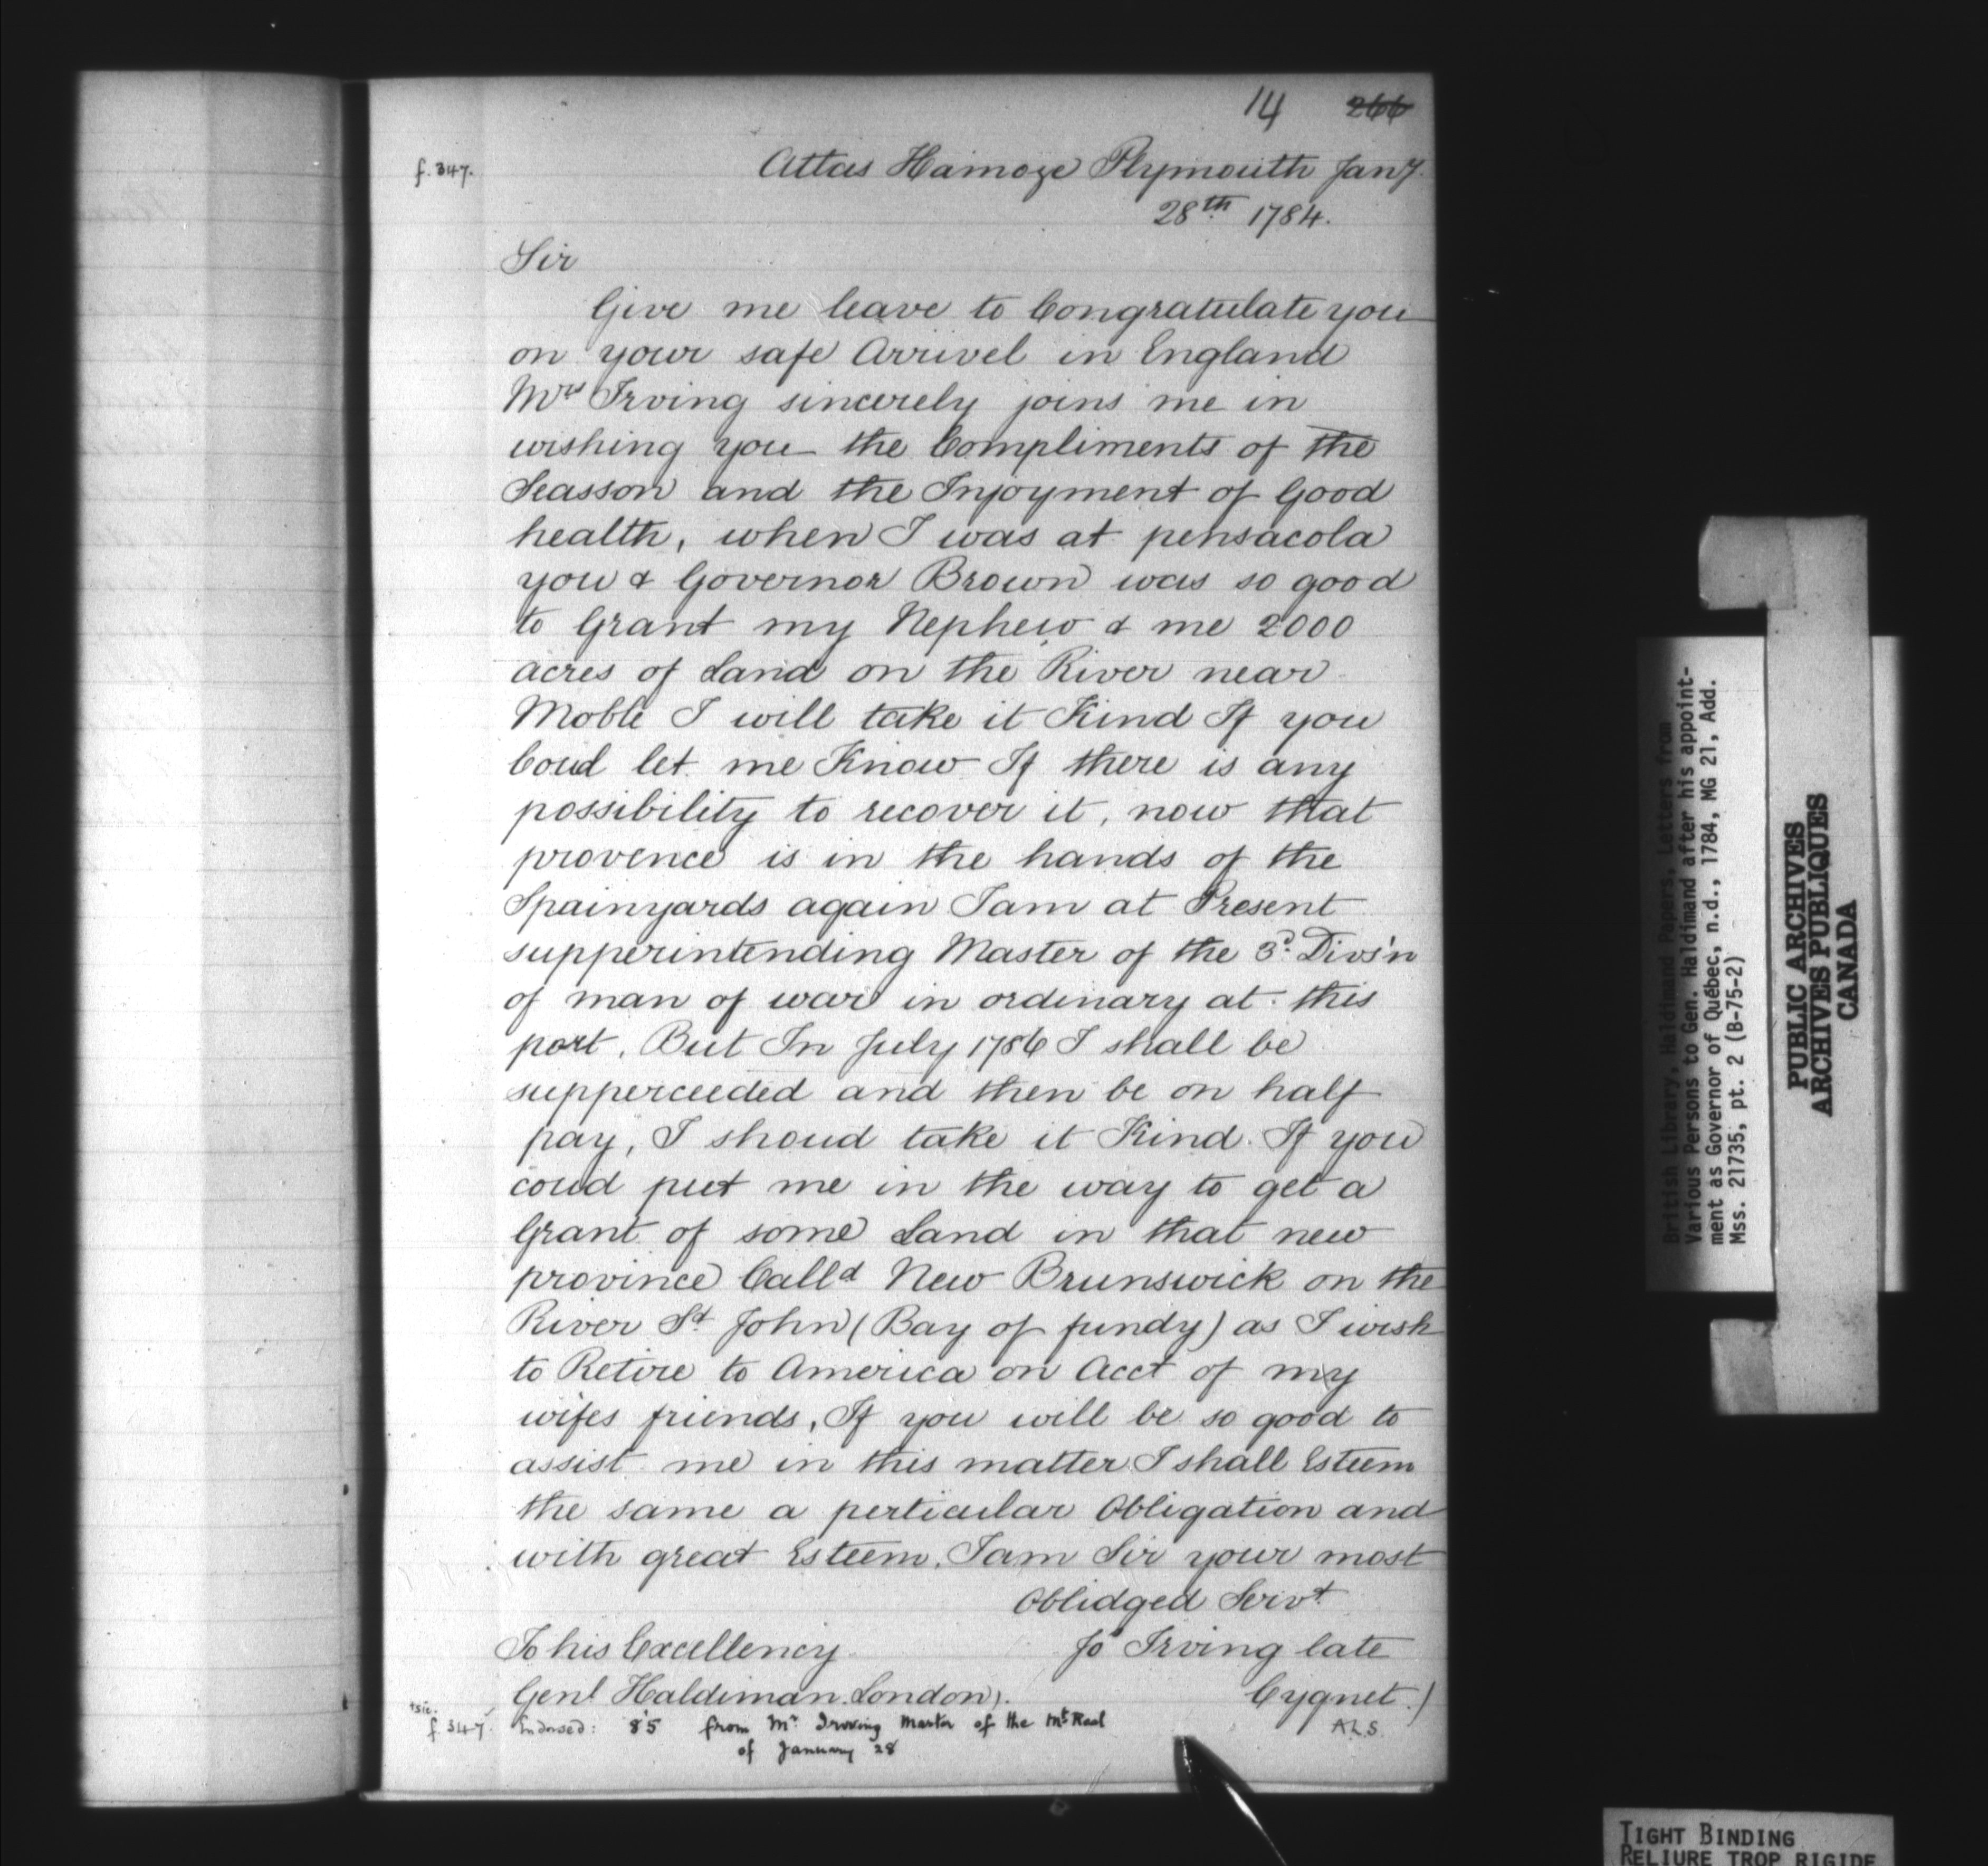 14 266
f. 347.
Attas Hamoze Plymouth Jany.
28th 1784.
Sir
Give me leave to Congratulate you
on your safe Arrivel in England
Mrs Irving sincerely joins me in
wishing you the Compliments of the
Seasson and the Injoyment of Good
health, when I was at pensacola
you & Governor Brown was so good
to Grant my Nephew & me 2000
acres of Land on the River near
Moble I will take it Kind If you
Coud let me Know If there is any
possibility to recover it, now that
provence is in the hands of the
Spainyards again I am at Present
supperintending Master of the 3d. Divs'n
of man of war in ordinary at this
port. But In July 1786 I shall be
supperceeded and then be on half
pay, I shoud take it Kind If you
coud put me in the way to get a
Grant of some Land in that new
province Calld New Brunswick on the
River St John (Bay of fundy) as I wish
to Retire to America on Acct of my
wifes friends, If you will be so good to
assist me in this matter I shall Esteem
the same a perticular Obligation and
with great Esteem. I am Sir your most
Oblidged Servt
To his Excellency Jo Irving late
Genl Haldiman London). Cygnet.)
sic.
f. 347. Endorsed: 85 from Mr Irving Master of the Mt Real
of January 28
A.L.S.
British Library, Haldimand Papers, Letters from
Various Persons to Gen. Haldimand after his appoint-
ment as Governor of Québec, n.d., 1784, MG 21, Add.
Mss. 21735, pt. 2 (B-75-2)
PUBLIC ARCHIVES
ARCHIVES PUBLIQUES
CANADA
TIGHT BINDING
RELIURE TROP RIGIDE